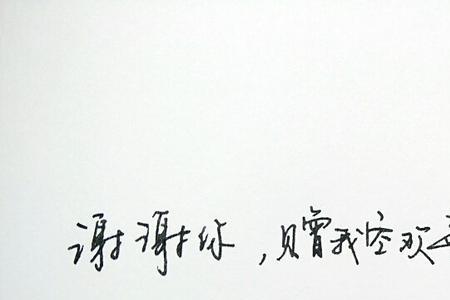 谢谢你，赠我空欢